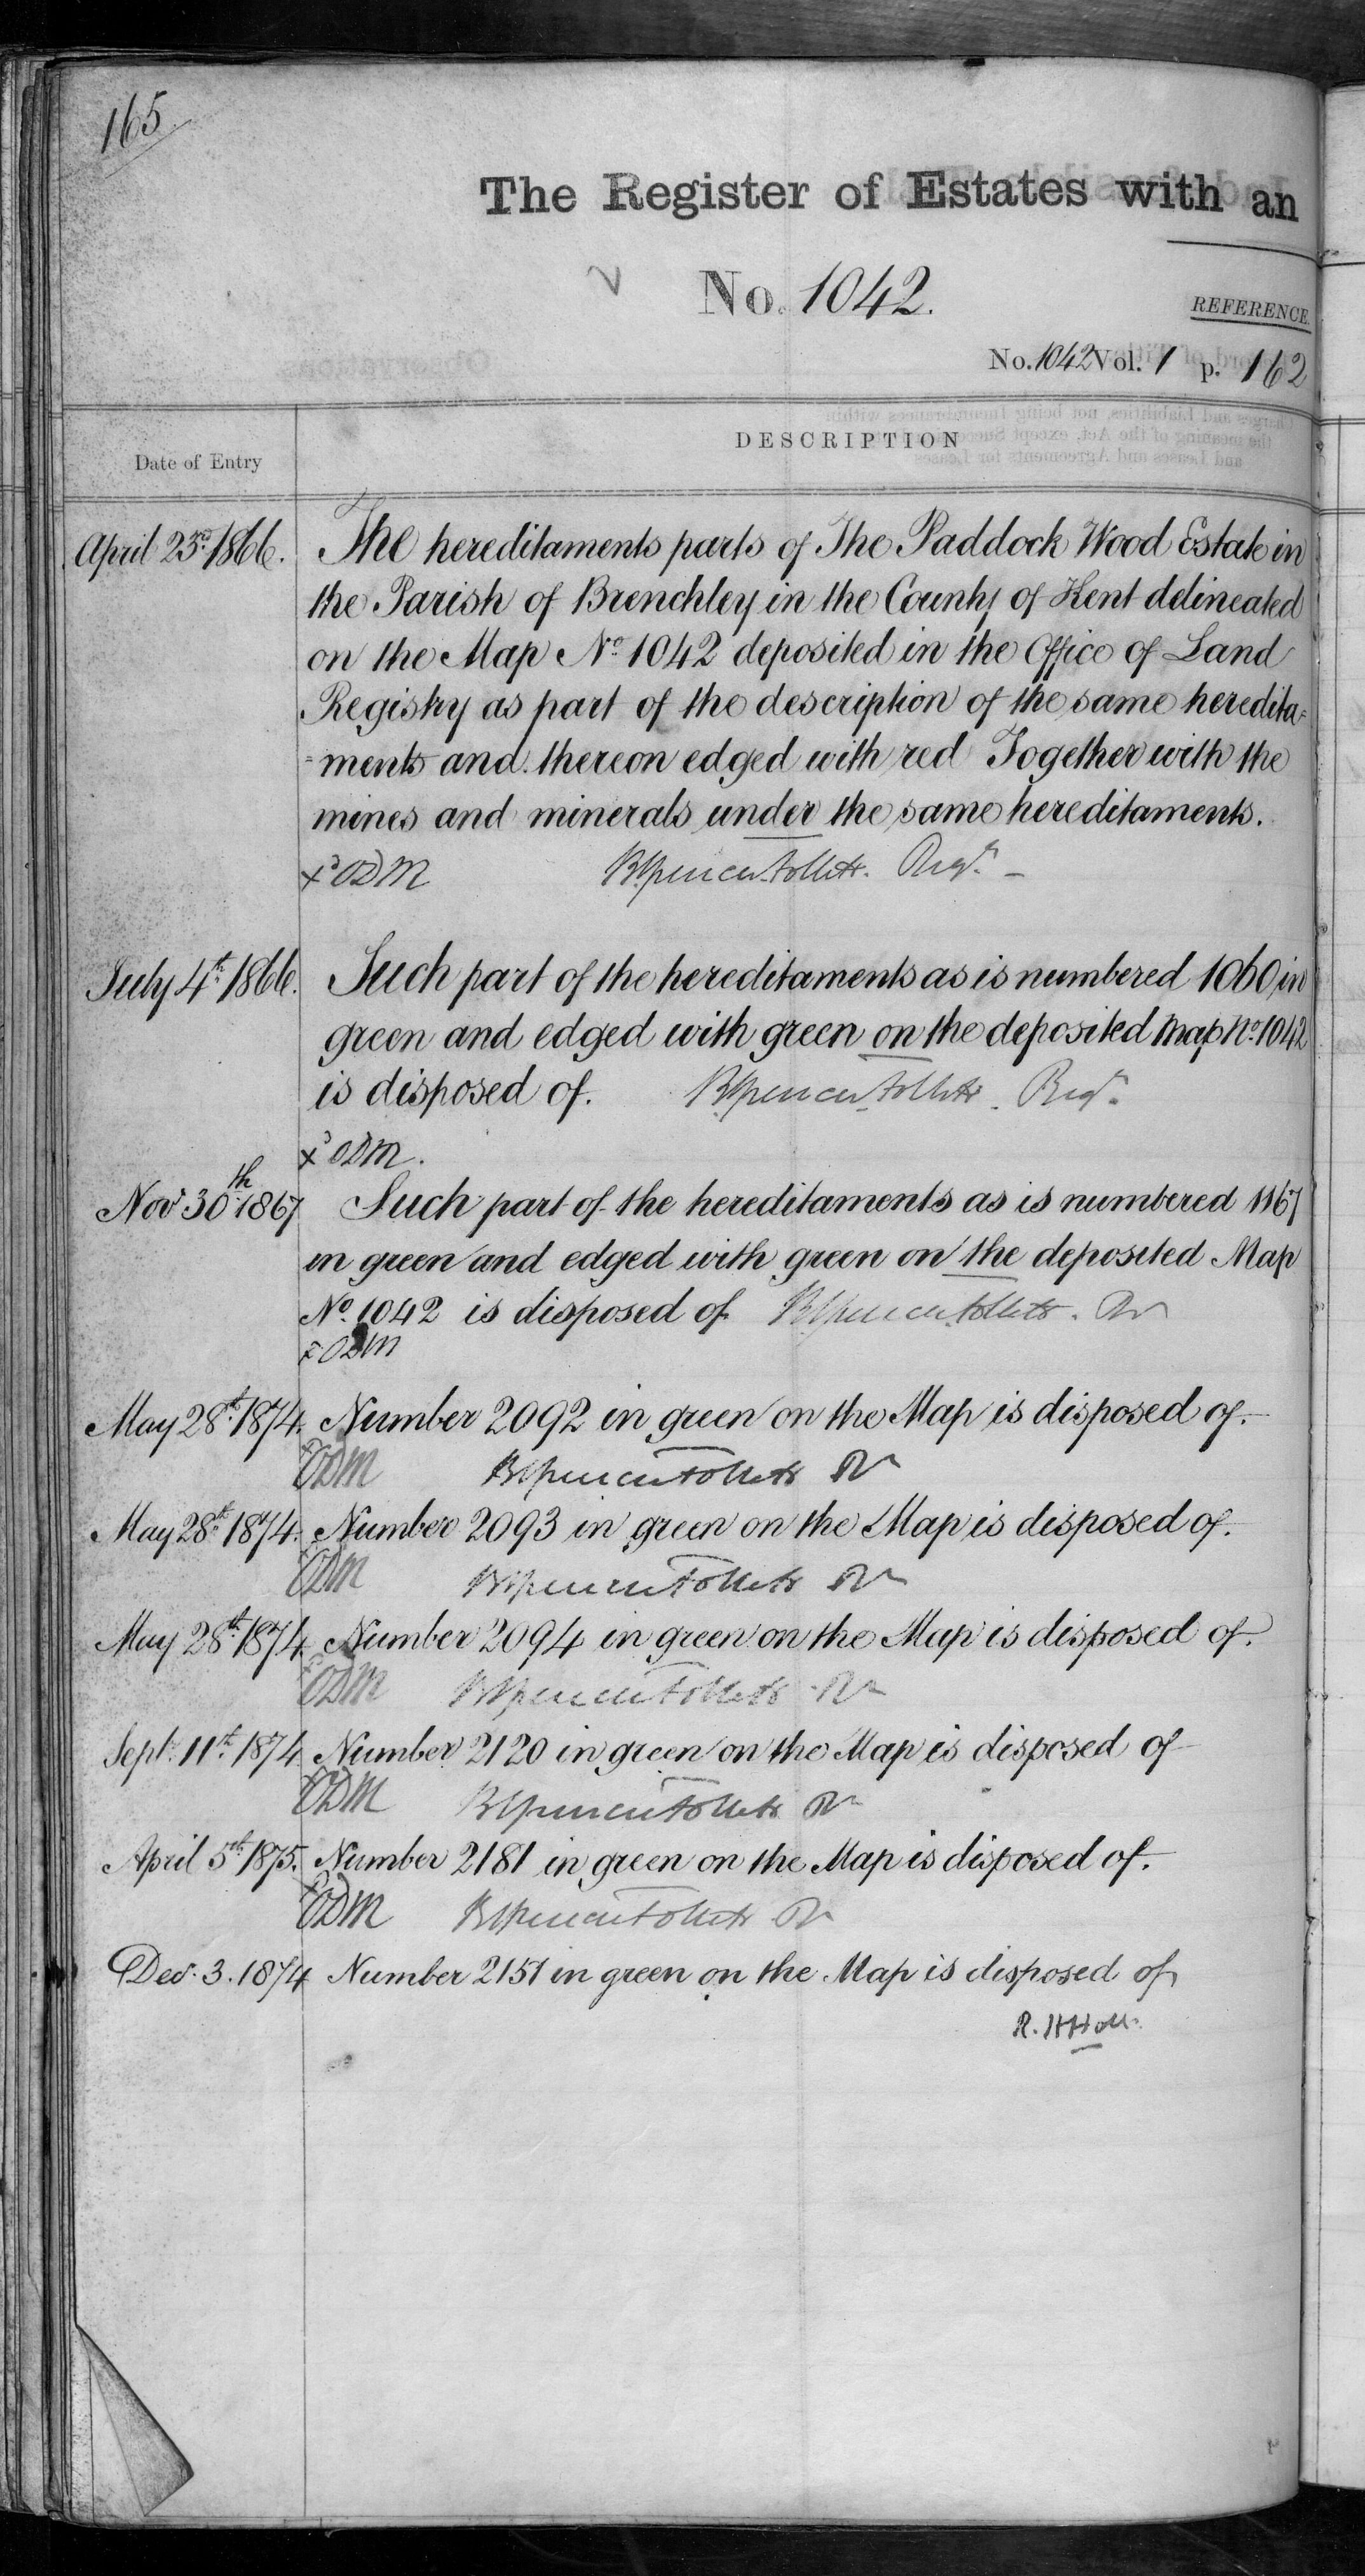 165
The Register of Estates with an
No. 1042.
REFERENCE.
No. 1042 Vol. 1 p. 162
DESCRIPTION
Date of Entry
April 23rd 1866. The hereditaments parts of The Paddock Wood Estate in
the Parish of Brenchley in the County of Kent delineated
on the Map No. 1042 deposited in the Office of Land
Registry as part of the description of the same heredita-
-ments and thereon edged with red Together with the
mines and minerals under the same hereditaments.
ODM Brent Spencer Follett. Regr.
July 4th 1866. Such part of the hereditaments as is numbered 1060 in
green and edged with green on the deposited Map No. 1042
is disposed of. BSpencer Follett. Regr.
ODM.
Nov 30th 1867 Such part of the hereditaments as is numbered 1167
in green and edged with green on the deposited Map
No. 1042 is disposed of BSpencer Follett. Rr
ODM
May 28th 1874. Number 2092 in green on the Map is disposed of.
ODM BSpencer Follett Rr
May 28th 1874. Number 2093 in green on the Map is disposed of.
ODM BSpencer Follett Rr
May 28th 1874. Number 2094 in green on the Map is disposed of.
ODM BSpencer Follett Rr
Sept. 11th 1874 Number 2120 in green on the Map is disposed of
ODM BSpencer Follett Rr
April 5th 1875. Number 2181 in green on the Map is disposed of.
ODM BSpencer Follett Rr
Decr. 3. 1874 Number 2151 in green on the Map is disposed of
R. H Holt